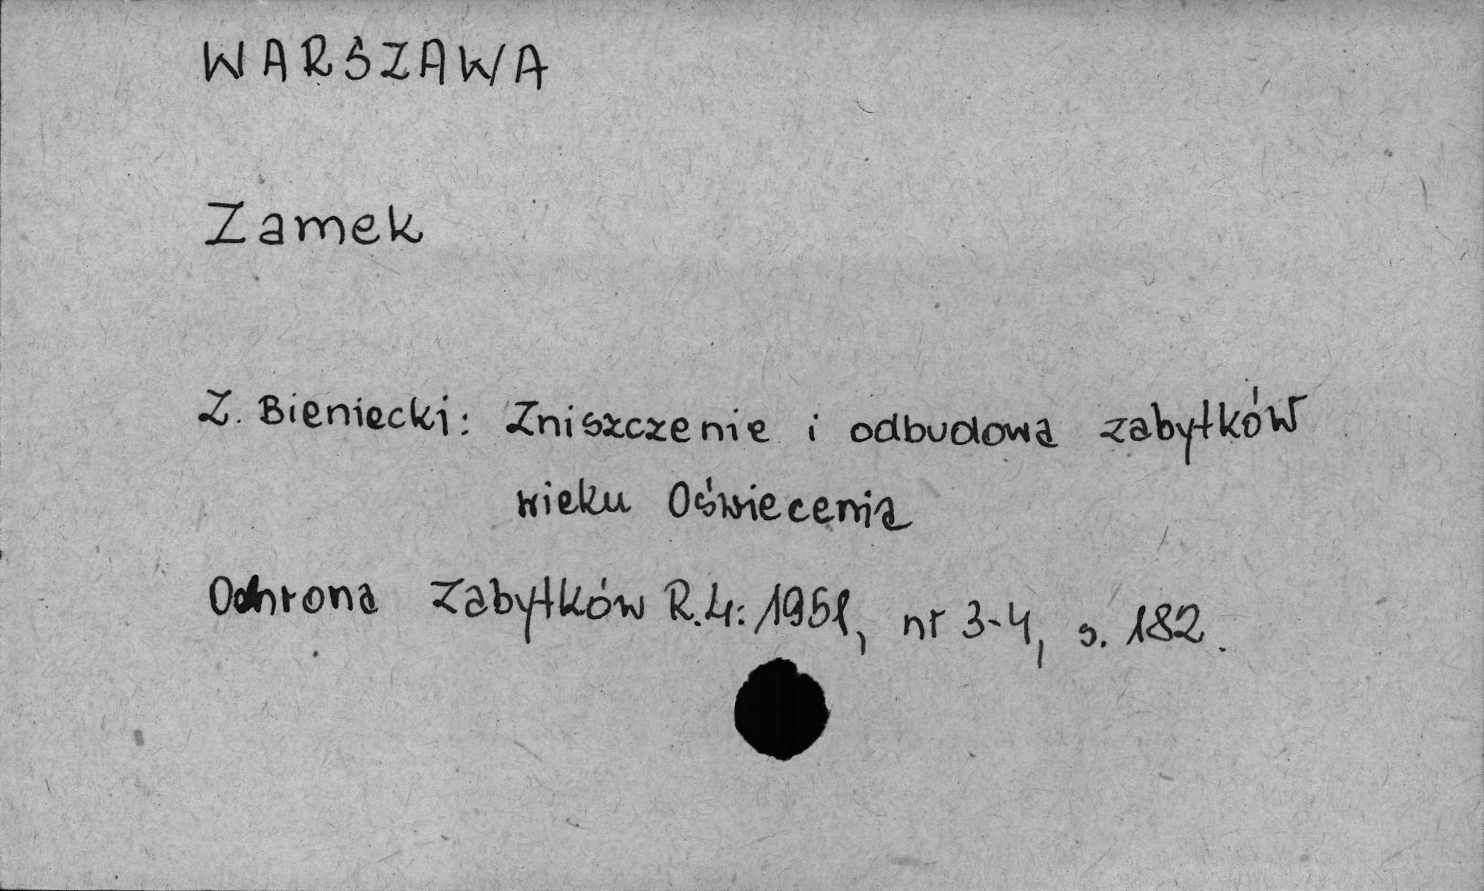 WARSZAWA
Zamek
Z. Bieniecki: Zniszczenie i odbudowa zabytków
wieku Oświecenia
Ochrona Zabytków R.4: 1951, nr 3-4, s. 182.